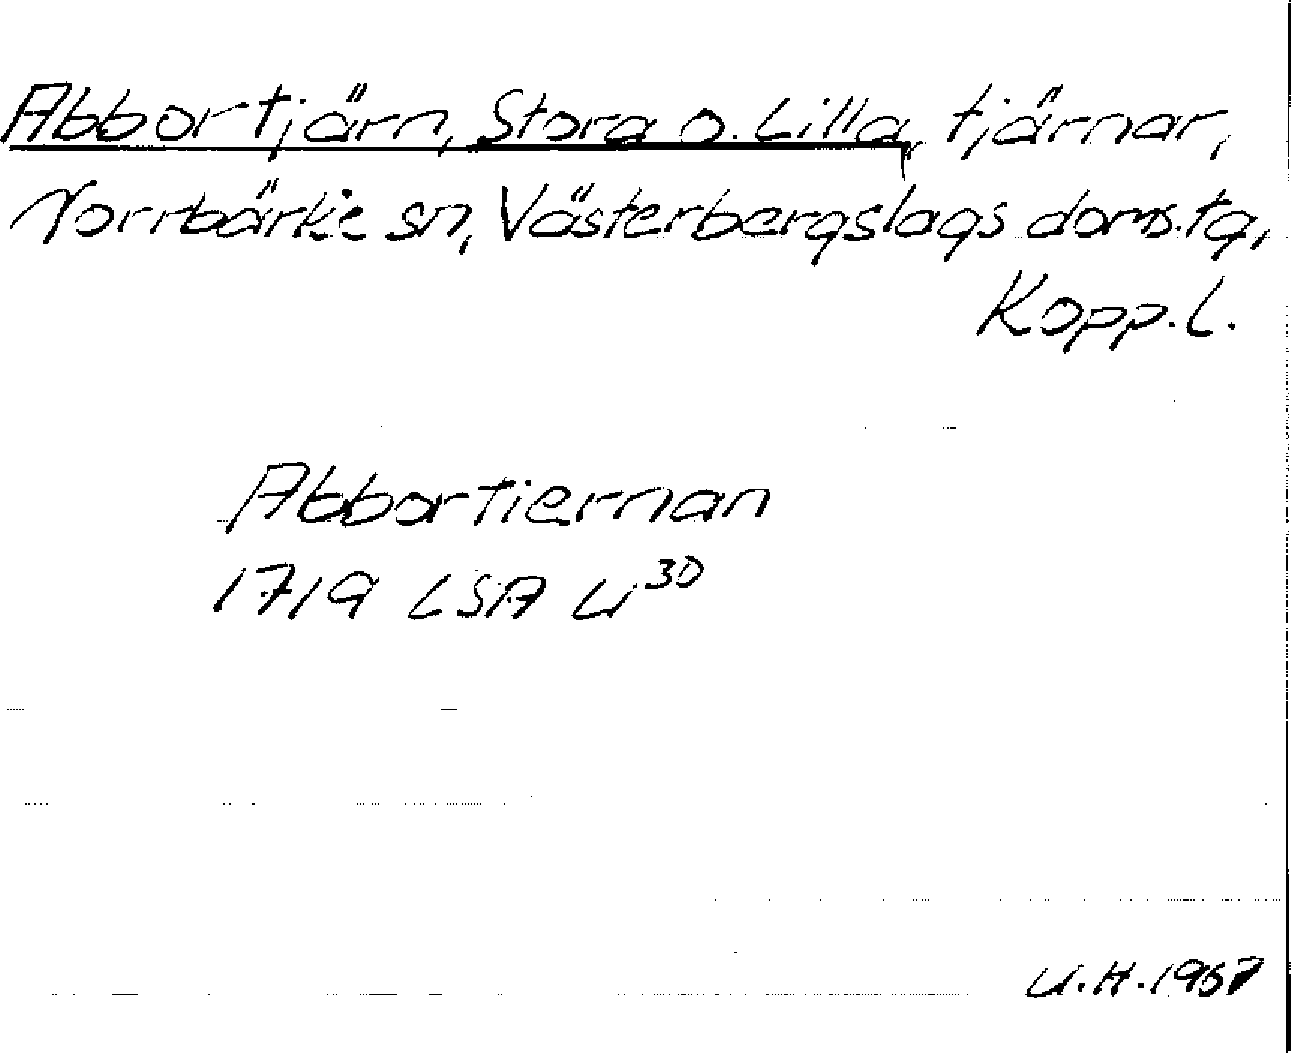 Abbortjärn, Stora o. Lilla, tjärnar,
Norrbärke sn, Västerbergslags doms.tg,
Kopp.l.
Abbortiernan
1719 LSA U³⁰
U.H.1967